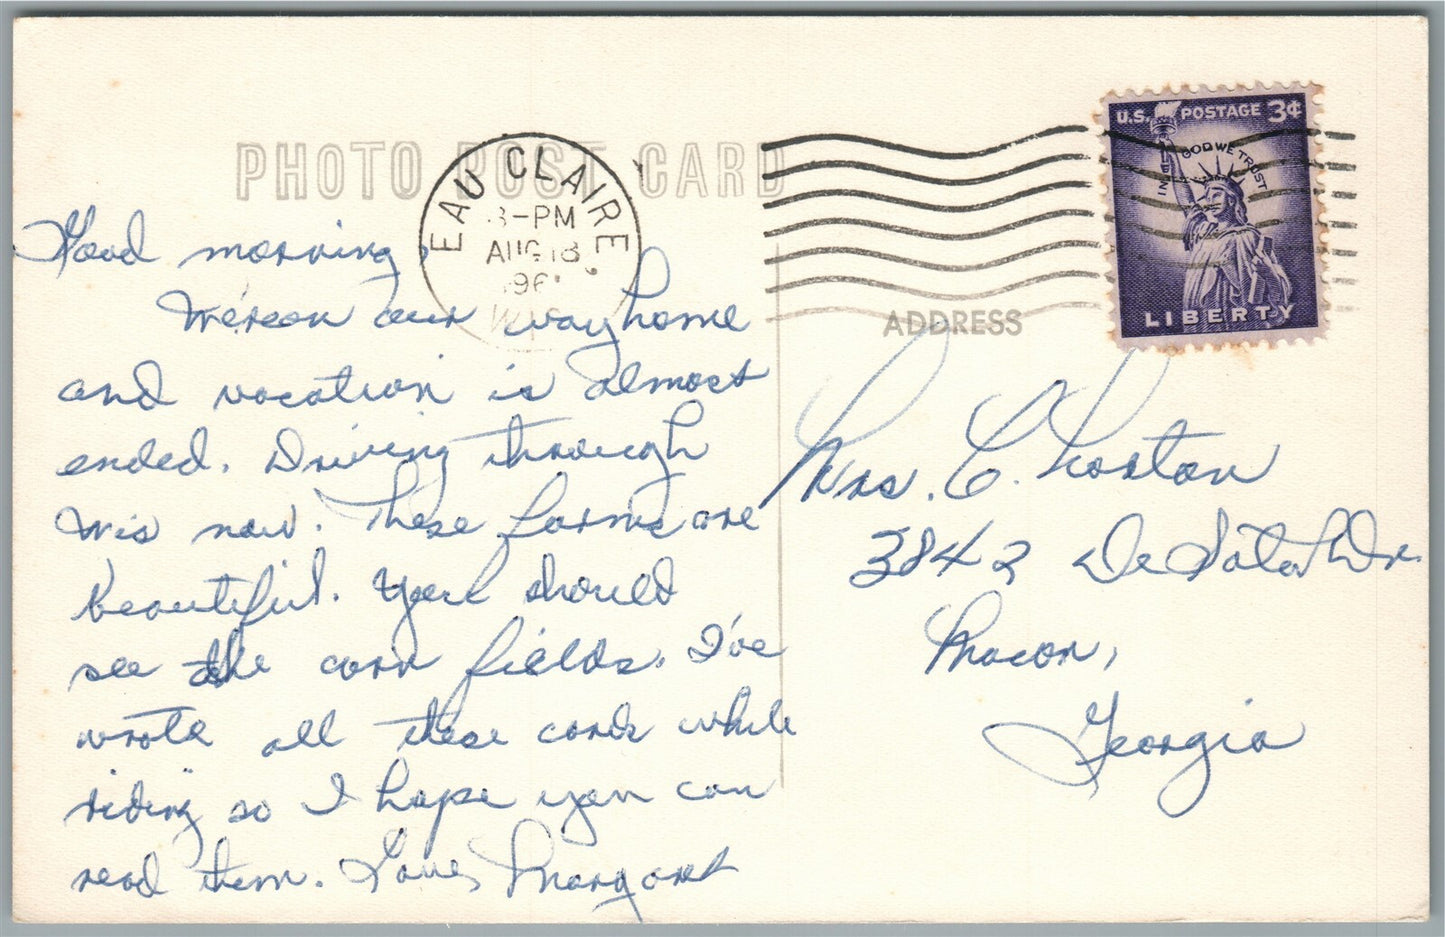 PHOTO POST CARD
EAU CLAIRE
3-PM
AUG 18
196
WIS
U.S. POSTAGE 3¢
IN GOD WE TRUST
LIBERTY
ADDRESS
Good morning,
We're on our way home
and vacation is almost
ended. Driving through
Wis now. These farms are
beautiful. You should
see the corn fields. I've
wrote all these cards while
riding so I hope you can
read them. Love, Margaret
Mrs. C. Horton
3842 De Soto Dr.
Macon,
Georgia